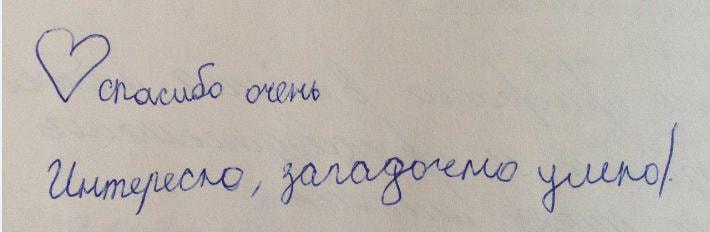 спасибо очень
Интересно, загадочно умно!